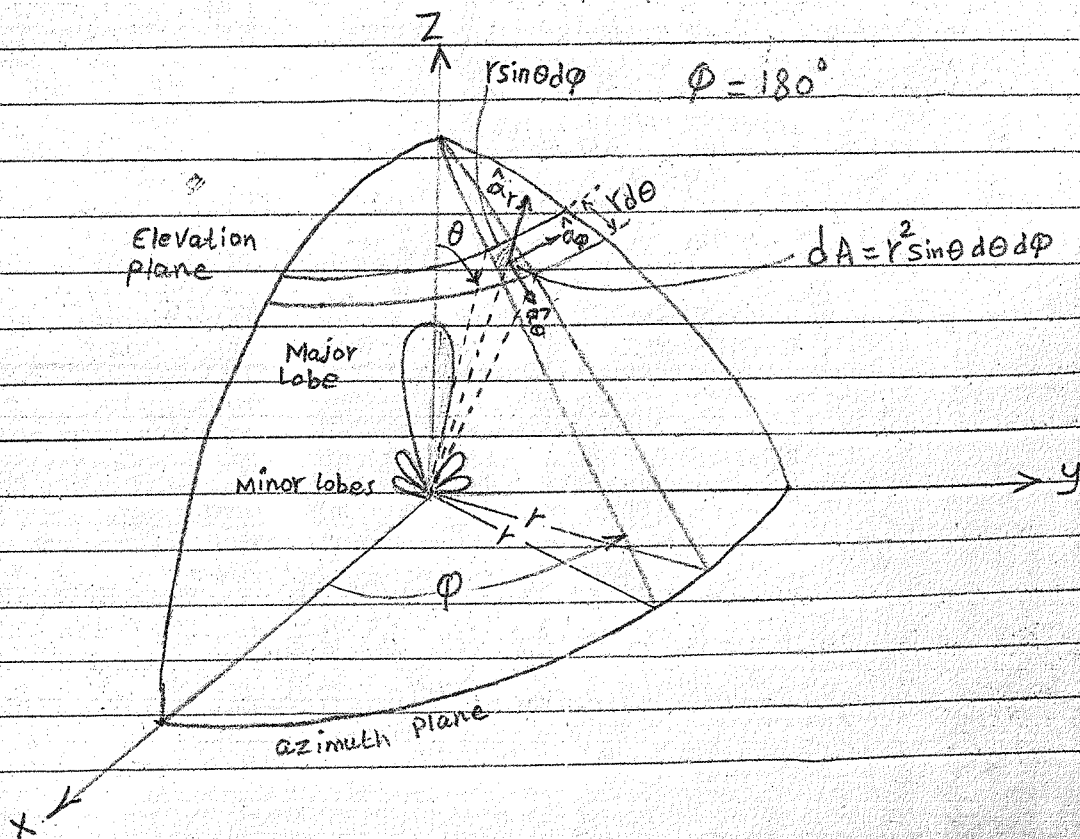 Z
rsinθdφ
Φ = 180°
âr
rdθ
Elevation
plane
θ
âφ
dA = r² sinθ dθ dφ
âθ
Major
lobe
Minor lobes
y
r
r
φ
azimuth plane
X